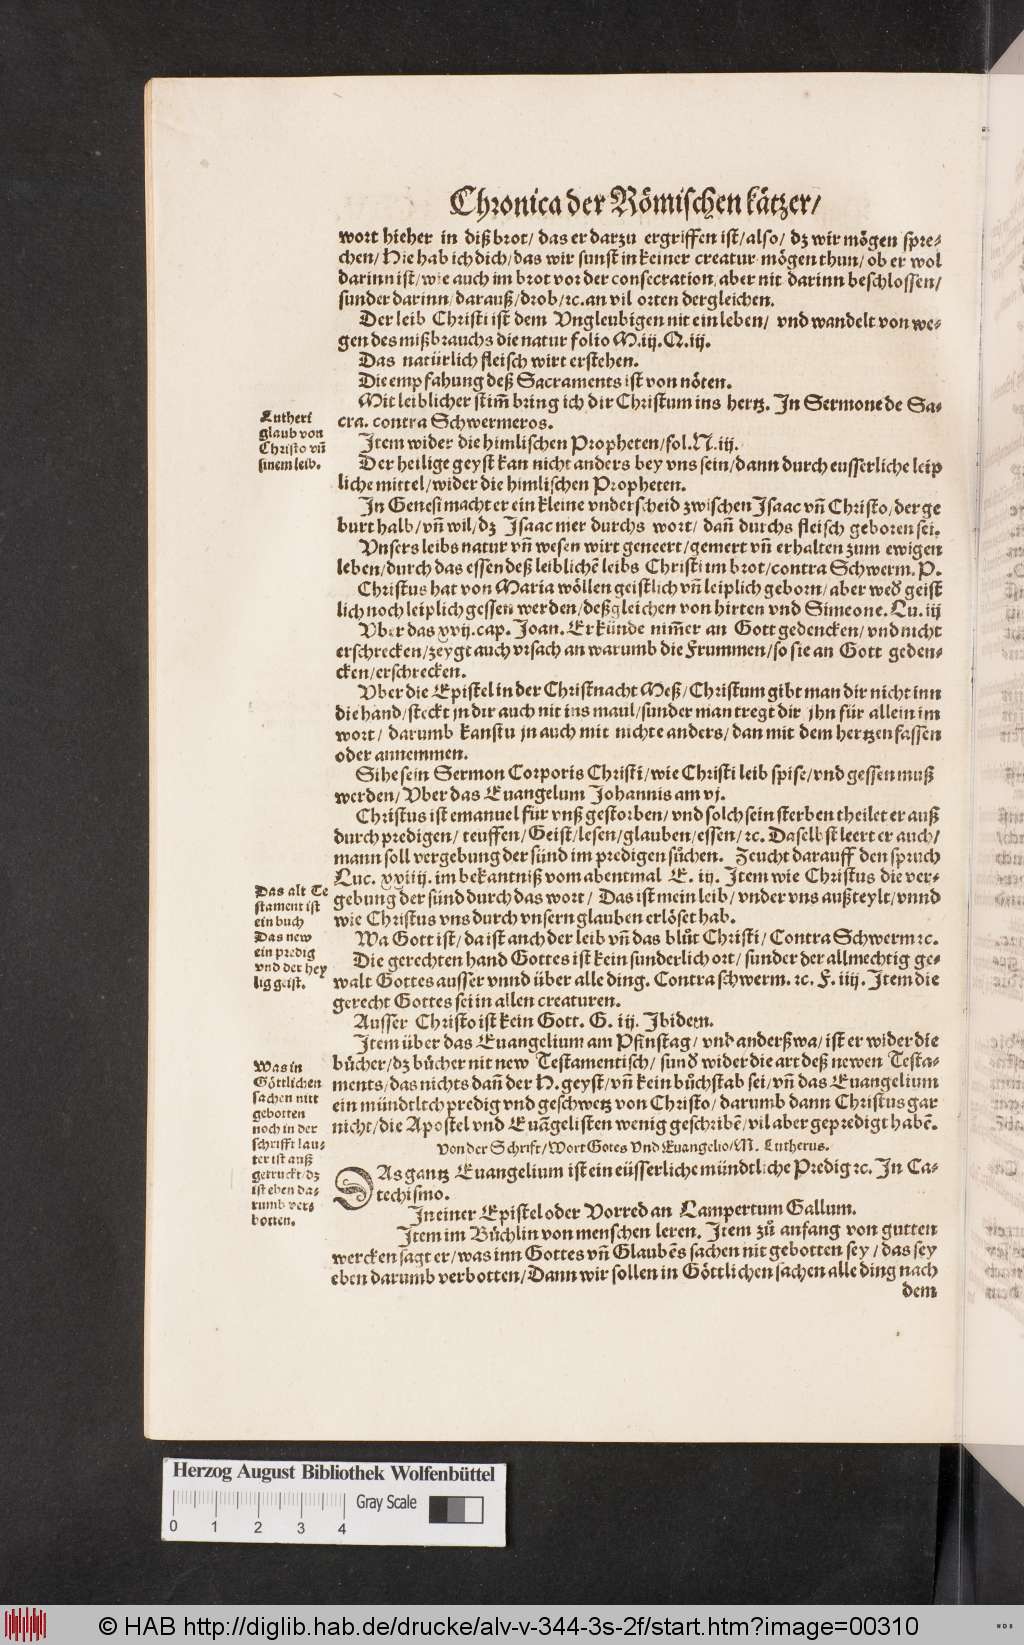 Chronica der Römischen kätzer/
wort hieher in diß brot/ das er darzu ergriffen ist/also/ dz wir mögen spre-
chen/ Hie hab ich dich/das wir sunst in keiner creatur mögen thun/ ob er wol
darinn ist/wie auch im brot vor der consecration/aber nit darinn beschlossen/
sunder darinn/darauß/drob/ꝛc.an vil orten dergleichen.
Der leib Christi ist dem Vngleubigen nit ein leben/ vnd wandelt von we-
gen des mißbrauchs die natur folio M.iij.Q.iij.
Das natürlich fleisch wirt erstehen.
Die empfahung deß Sacraments ist von nöten.
Mit leiblicher stim̃ bring ich dir Christum ins hertz. In Sermone de Sa-
cra. contra Schwermeros.
Item wider die himlischen Propheten/fol.N.iij.
Lutheri
glaub von
Christo vñ
sinem leib.
Der heilige geyst kan nicht anders bey vns sein/dann durch eusserliche leip
liche mittel/wider die himlischen Propheten.
In Genesi macht er ein kleine vnderscheid zwischen Isaac vñ Christo/der ge
burt halb/vñ wil/dz Isaac mer durchs wort/ dañ durchs fleisch geboren sei.
Vnsers leibs natur vñ wesen wirt geneert/gemert vñ erhalten zum ewigen
leben/durch das essen deß leiblichē leibs Christi im brot/contra Schwerm.P.
Christus hat von Maria wöllen geistlich vñ leiplich geborn/aber wed̕ geist
lich noch leiplich gessen werden/deßgleichen von hirten vnd Simeone.Lu.iij
Vber das xvij.cap. Joan. Er künde nim̃er an Gott gedencken/vnd nicht
erschrecken/zeygt auch vrsach an warumb die Frummen/so sie an Gott geden-
cken/erschrecken.
Vber die Epistel in der Christnacht Meß/Christum gibt man dir nicht inn
die hand/steckt jn dir auch nit ins maul/sunder man tregt dir jhn für allein im
wort/ darumb kanstu jn auch mit nichte anders/dan mit dem hertzen fassen
oder annemmen.
Sihe sein Sermon Corporis Christi/wie Christi leib spise/vnd gessen muß
werden/Vber das Euangelum Johannis am vj.
Christus ist emanuel für vnß gestorben/vnd solch sein sterben theilet er auß
durch predigen/teuffen/Geist/lesen/glauben/essen/ꝛc.Daselbst leert er auch/
mann soll vergebung der sünd im predigen sůchen. Zeucht darauff den spruch
Luc. xxiiij. im bekantniß vom abentmal E. iij. Item wie Christus die ver-
Das alt Te
stament ist
ein buch
Das new
ein predig
vnd der hey
lig geist.
gebung der sünd durch das wort/ Das ist mein leib/vnder vns außteylt/vnnd
wie Christus vns durch vnsern glauben erlöset hab.
Wa Gott ist/da ist auch der leib vñ das blůt Christi/Contra Schwerm ꝛc.
Die gerechten hand Gottes ist kein sunderlich ort/sunder der allmechtig ge-
walt Gottes ausser vnnd über alle ding. Contra schwerm. ꝛc. F. iiij. Item die
gerecht Gottes sei in allen creaturen.
Ausser Christo ist kein Gott. G. iij. Ibidem.
Item über das Euangelium am Pfinstag/ vnd anderßwa/ist er wider die
Was in
Göttlichen
sachen nitt
gebotten
noch in der
schrifft lau-
ter ist auß
getruckt/dz
ist eben da-
rumb ver-
botten.
bůcher/dz bůcher nit new Testamentisch/ sund̕ wider die art deß newen Testa-
ments/das nichts dañ der H.geyst/vñ kein bůchstab sei/vñ das Euangelium
ein mündtltch predig vnd geschwetz von Christo/darumb dann Christus gar
nicht/die Apostel vnd Euãgelisten wenig geschribē/vil aber gepredigt habē.
Von der Schrift/Wort Gotes Vnd Euangelio/M. Lutherus.
DAs gantz Euangelium ist ein eüsserliche mündtliche Predig ꝛc. In Ca-
techismo.
In einer Epistel oder Vorred an Lampertum Gallum.
Item im Büchlin von menschen leren. Item zů anfang von gutten
wercken sagt er/was inn Gottes vñ Glaubēs sachen nit gebotten sey/das sey
eben darumb verbotten/Dann wir sollen in Göttlichen sachen alle ding nach
dem
Herzog August Bibliothek Wolfenbüttel
Gray Scale
0 1 2 3 4
© HAB http://diglib.hab.de/drucke/alv-v-344-3s-2f/start.htm?image=00310